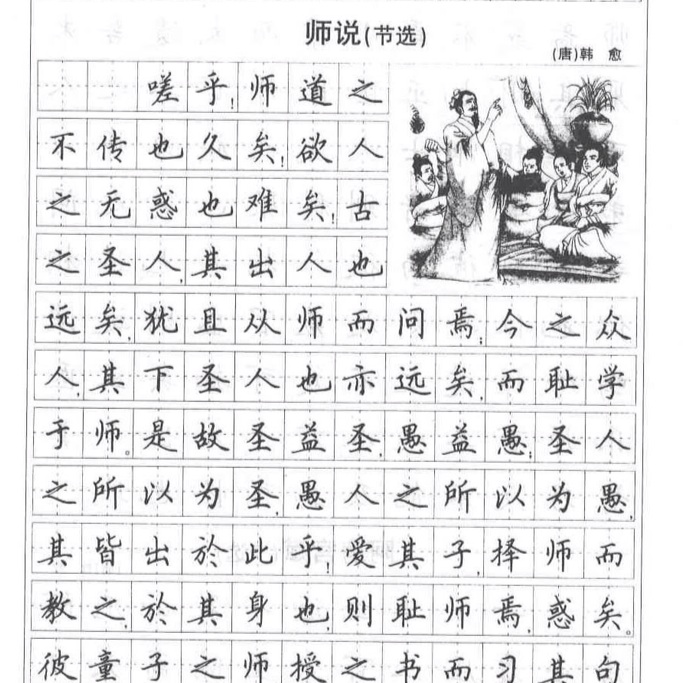 师说(节选)
(唐)韩 愈
嗟乎!师道之
不传也久矣!欲人
之无惑也难矣!古
之圣人,其出人也
远矣,犹且从师而问焉;今之众
人,其下圣人也亦远矣,而耻学
于师。是故圣益圣,愚益愚;圣人
之所以为圣,愚人之所以为愚,
其皆出於此乎!爱其子,择师而
教之,於其身也,则耻师焉,惑矣。
彼童子之师授之书而习其句